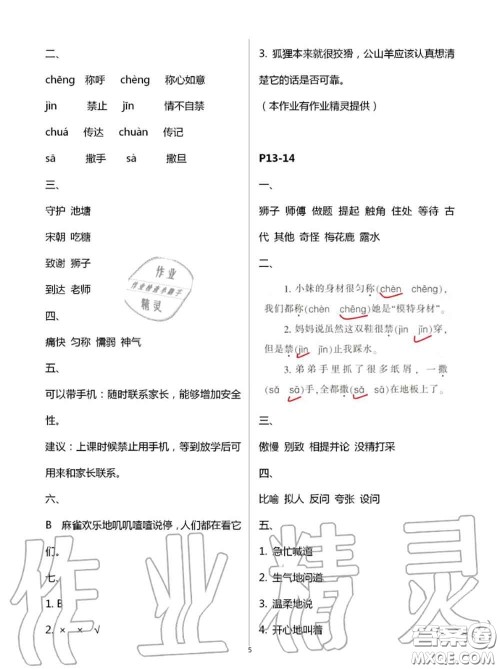 二、
chēng 称呼 chèng 称心如意
jìn 禁止 jīn 情不自禁
chuá 传达 chuàn 传记
sā 撒手 sà 撒旦
三、
守护 池塘
宋朝 吃糖
致谢 狮子
到达 老师
四、
痛快 匀称 懦弱 神气
五、
可以带手机：随时联系家长，能够增加安全
性。
建议：上课时候禁止用手机，等到放学后可
用来和家长联系。
六、
B 麻雀欢乐地叽叽喳喳说停，人们都在看它
们。
七、
1. B
2. × × √
3. 狐狸本来就很狡猾，公山羊应该认真想清
楚它的话是否可靠。
（本作业有作业精灵提供）
P13-14
一、
狮子 师傅 做题 提起 触角 住处 等待 古
代 其他 奇怪 梅花鹿 露水
二、
1. 小妹的身材很匀称(chèn chēng),
我们都称(chèn chēng)她是“模特身材”。
2. 妈妈说虽然这双鞋很禁(jìn jīn)穿,
但是禁(jìn jīn)止我踩水。
3. 弟弟手里抓了很多纸屑,一撒
(sǎ sā)手,全都撒(sǎ sā)在地板上了。
三、
傲慢 别致 相提并论 没精打采
四、
比喻 拟人 反问 夸张 设问
五、
1. 急忙喊道
2. 生气地问道
3. 温柔地说
4. 开心地叫着
5
作业
作业的落水精子
精灵
作业精灵
答案圈
MXQE.COM